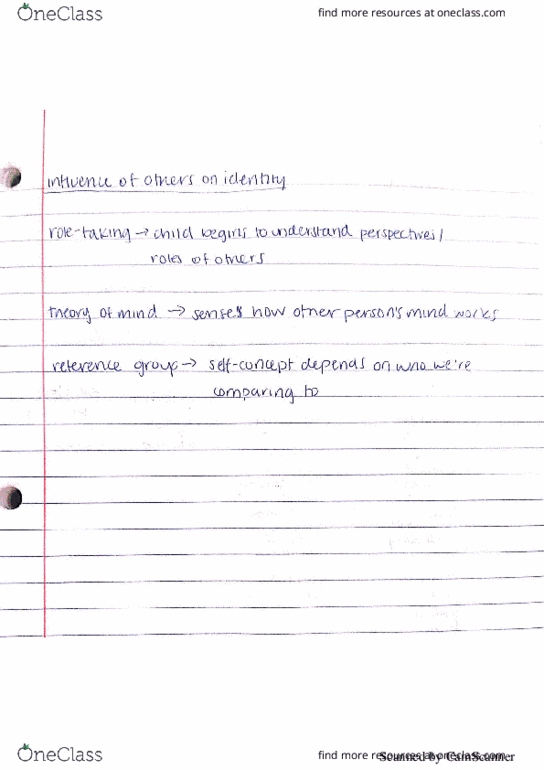 OneClass
find more resources at oneclass.com
influence of others on identity
role-taking → child begins to understand perspectives/
roles of others
theory of mind → senses how other person's mind works
reference group → self-concept depends on who we're
comparing to
OneClass
find more resources at oneclass.com
Scanned by CamScanner